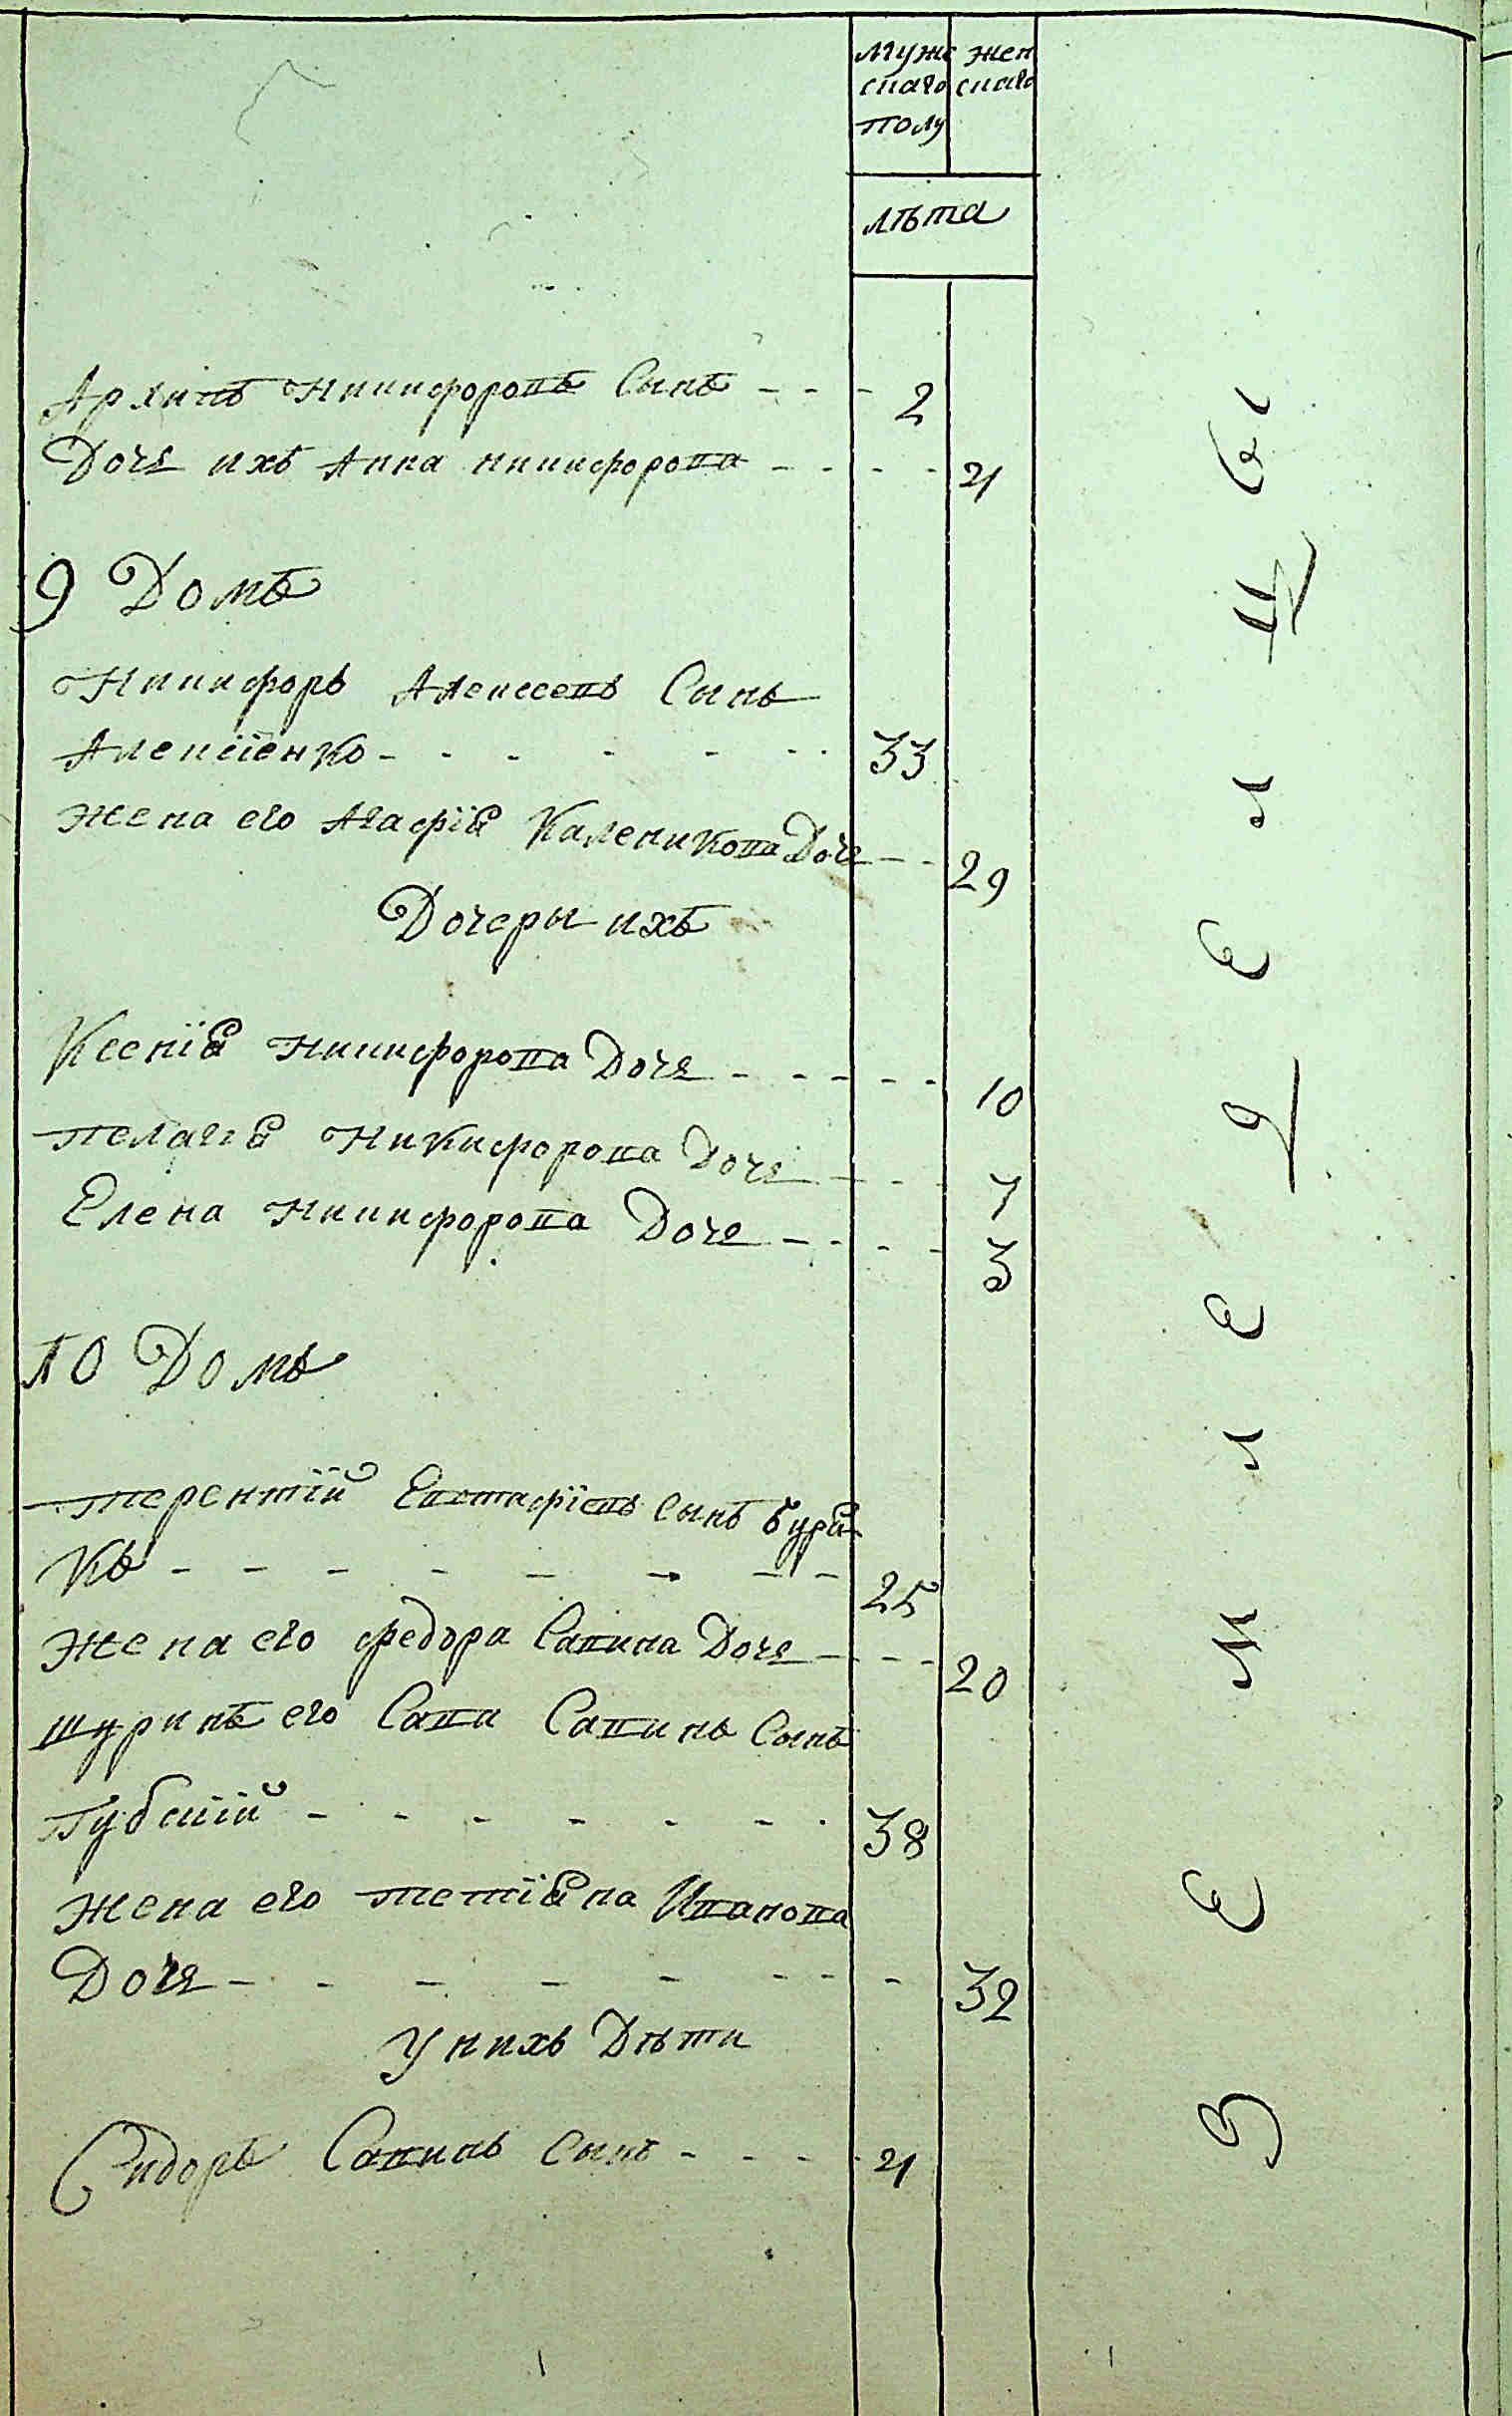 Муже жен
скаго скаго
полу
лѣта
Архипъ Никифоровъ Сынъ - - - 2
Дочь ихъ Анна никифорова - - - - 4
9 Домъ
Никифоръ Алексеевъ Сынъ
Алексіенко - - - - - - 33
жена его Агафіѧ Каленикова Дочь - - 29
Дочеры ихъ
Ксеніѧ Никифорова Дочь - - - - - 10
пелагіѧ Никифорова Дочь - - - 7
Елена Никифорова Дочь - - - - 3
10 Домъ
терентій Евстафіевъ сынъ бурй
Къ - - - - - - - - 25
жена его федора Савина Дочь - - - 20
шуринъ его Сави Савинъ Сынъ
Губскій - - - - - - - 38
жена его тетіѧна Иванова
Дочь - - - - - - - - 32
У нихъ Дѣти
Сидоръ Савинъ сынъ - - - - 4
З е м л е д е л ц ы